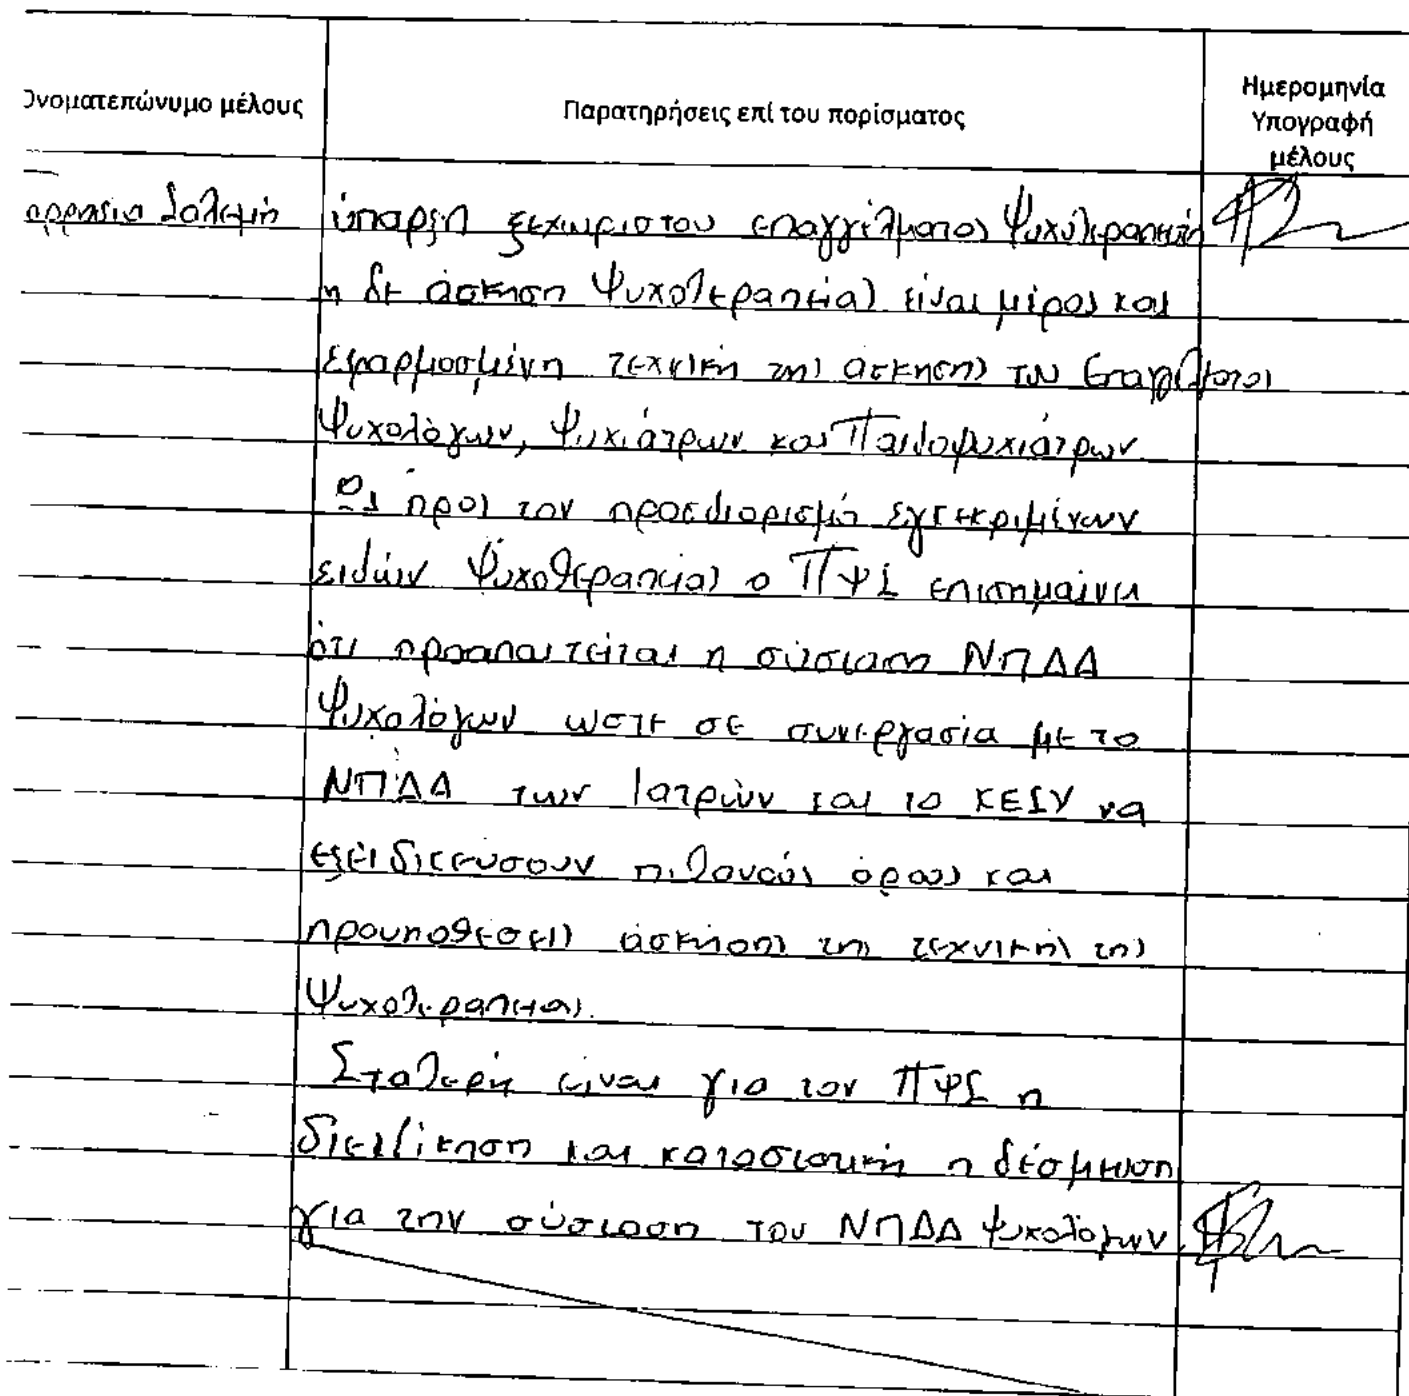 Ονοματεπώνυμο μέλους
Παρατηρήσεις επί του πορίσματος
Ημερομηνία
Υπογραφή
μέλους
ύπαρξη ξεχωριστου επαγγέλματος Ψυχοθεραπευτή
η δε άσκηση Ψυχοθεραπείας είναι μέρος και
εφαρμοσμένη τεχνική της άσκησης του Επαγγέλματος
Ψυχολόγων, Ψυχιάτρων και Παιδοψυχιάτρων
Ως προς τον προσδιορισμό εγκεκριμένων
ειδών Ψυχοθεραπείας ο ΠΨΣ επισημαίνει
ότι προαπαιτείται η σύσταση ΝΠΔΔ
Ψυχολόγων ωστε σε συνεργασία με το
ΝΠΔΔ των Ιατρών και το ΚΕΣΥ να
εξειδικεύσουν πιθανούς όρους και
προυποθέσεις άσκησης της τεχνικής της
Ψυχοθεραπείας.
Σταθερή είναι για τον ΠΨΣ η
διεκδίκηση και καταστατική η δέσμευση
για την σύσταση του ΝΠΔΔ Ψυχολόγων